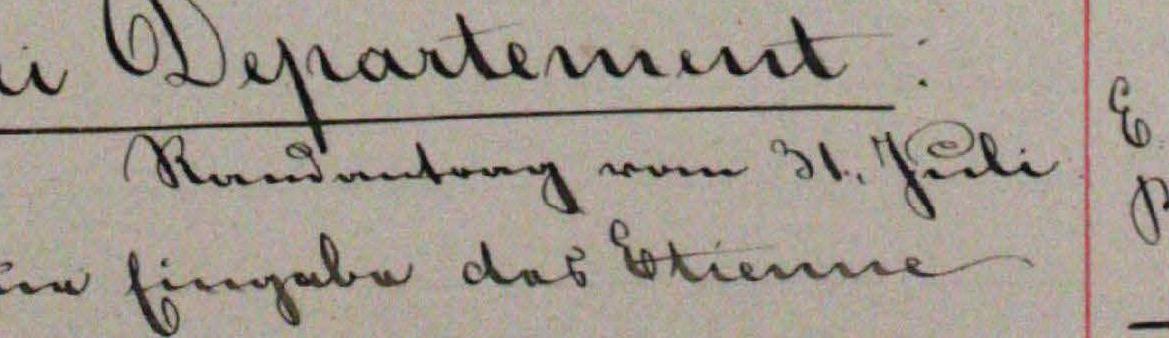 Departement :
Randantrag vom 31. Juli
Eingabe des Etienne